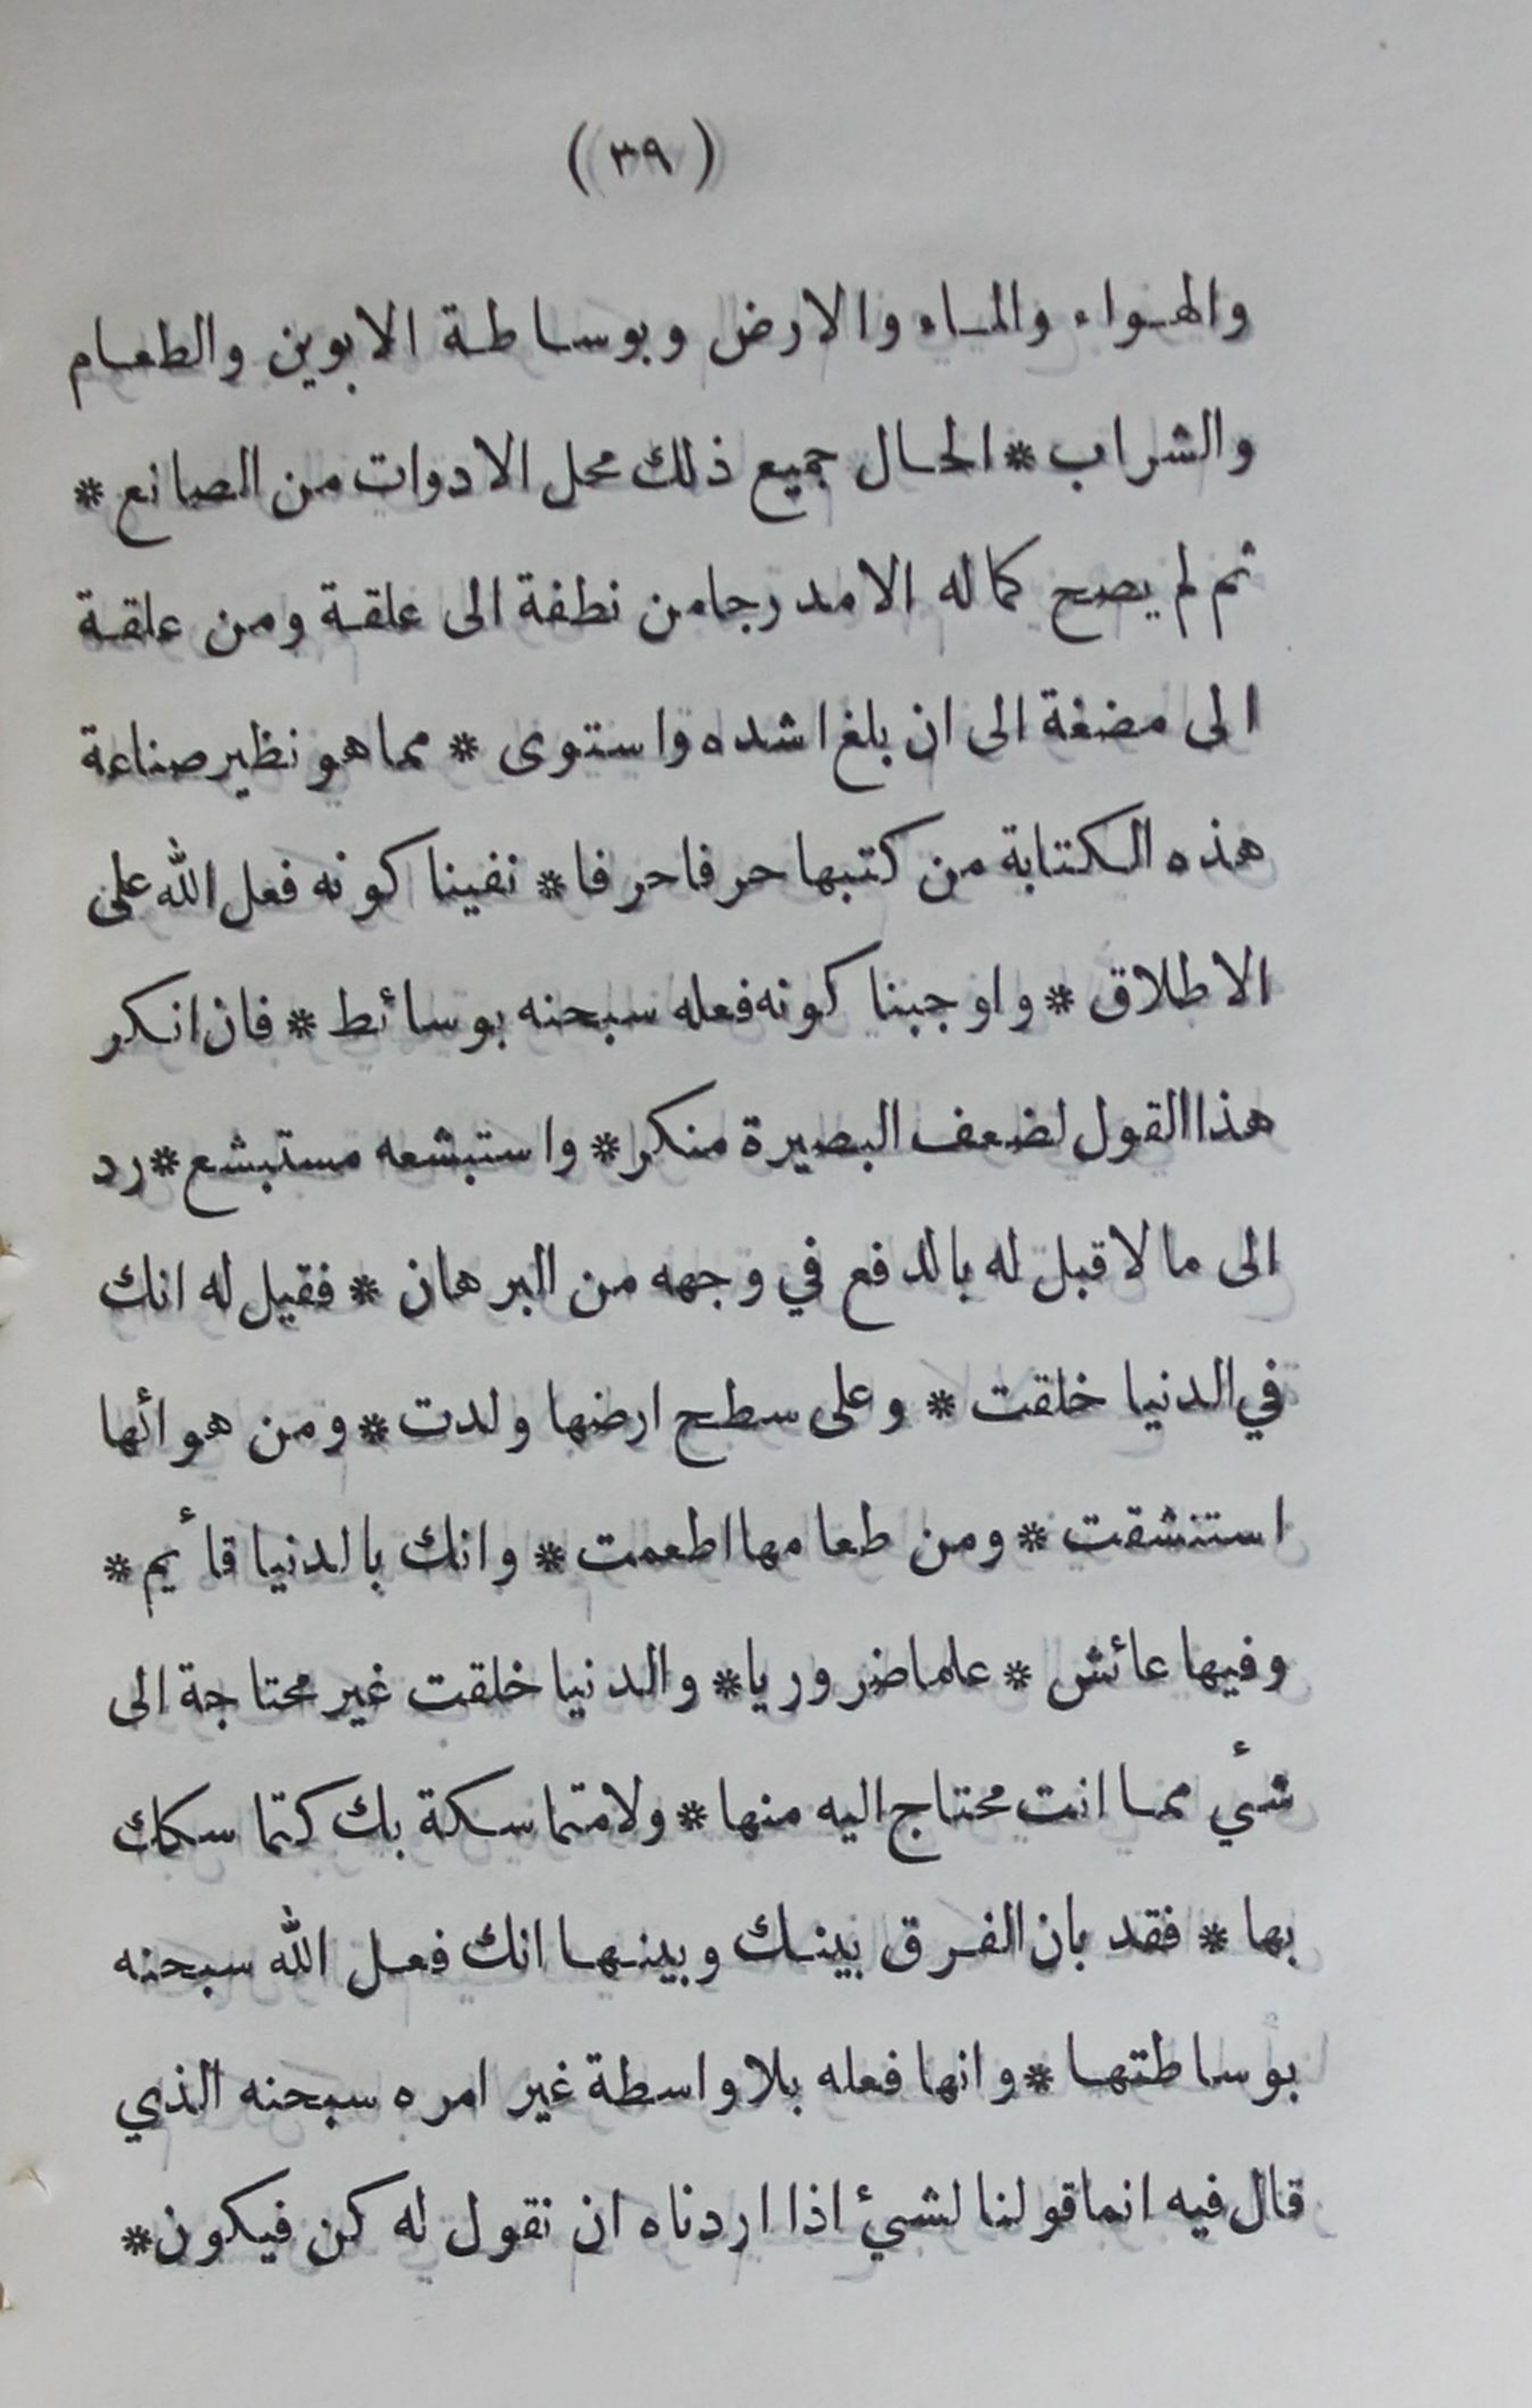 (٣٩)
والهواء والماء والارض وبوساطة الابوين والطعام
والشراب * الحال جميع ذلك محل الادوات من الصانع *
ثم لم يصح كماله الا مدرجا من نطفة الى علقة ومن علقة
الى مضغة الى ان بلغ اشده واستوى * مما هو نظير صناعة
هذه الكتابة من كتبها حرفا حرفا * نفينا كونه فعل الله على
الاطلاق * واوجبنا كونه فعله سبحنه بوسائط * فان انكر
هذا القول لضعف البصيرة منكر * واستبشعه مستبشع * رد
الى ما لا قبل له بالدفع في وجهه من البرهان * فقيل له انك
في الدنيا خلقت * وعلى سطح ارضها ولدت * ومن هوائها
استنشقت * ومن طعامها اطعمت * وانك بالدنيا قأيم *
وفيها عائش * علما ضروريا * والدنيا خلقت غير محتاجة الى
شيء مما انت محتاج اليه منها * ولا متماسكة بك كتماسكك
بها * فقد بان الفرق بينك وبينها انك فعل الله سبحنه
بوساطتها * وانها فعله بلا واسطة غير امره سبحنه الذي
قال فيه انما قولنا لشيئ اذا اردناه ان نقول له كن فيكون *